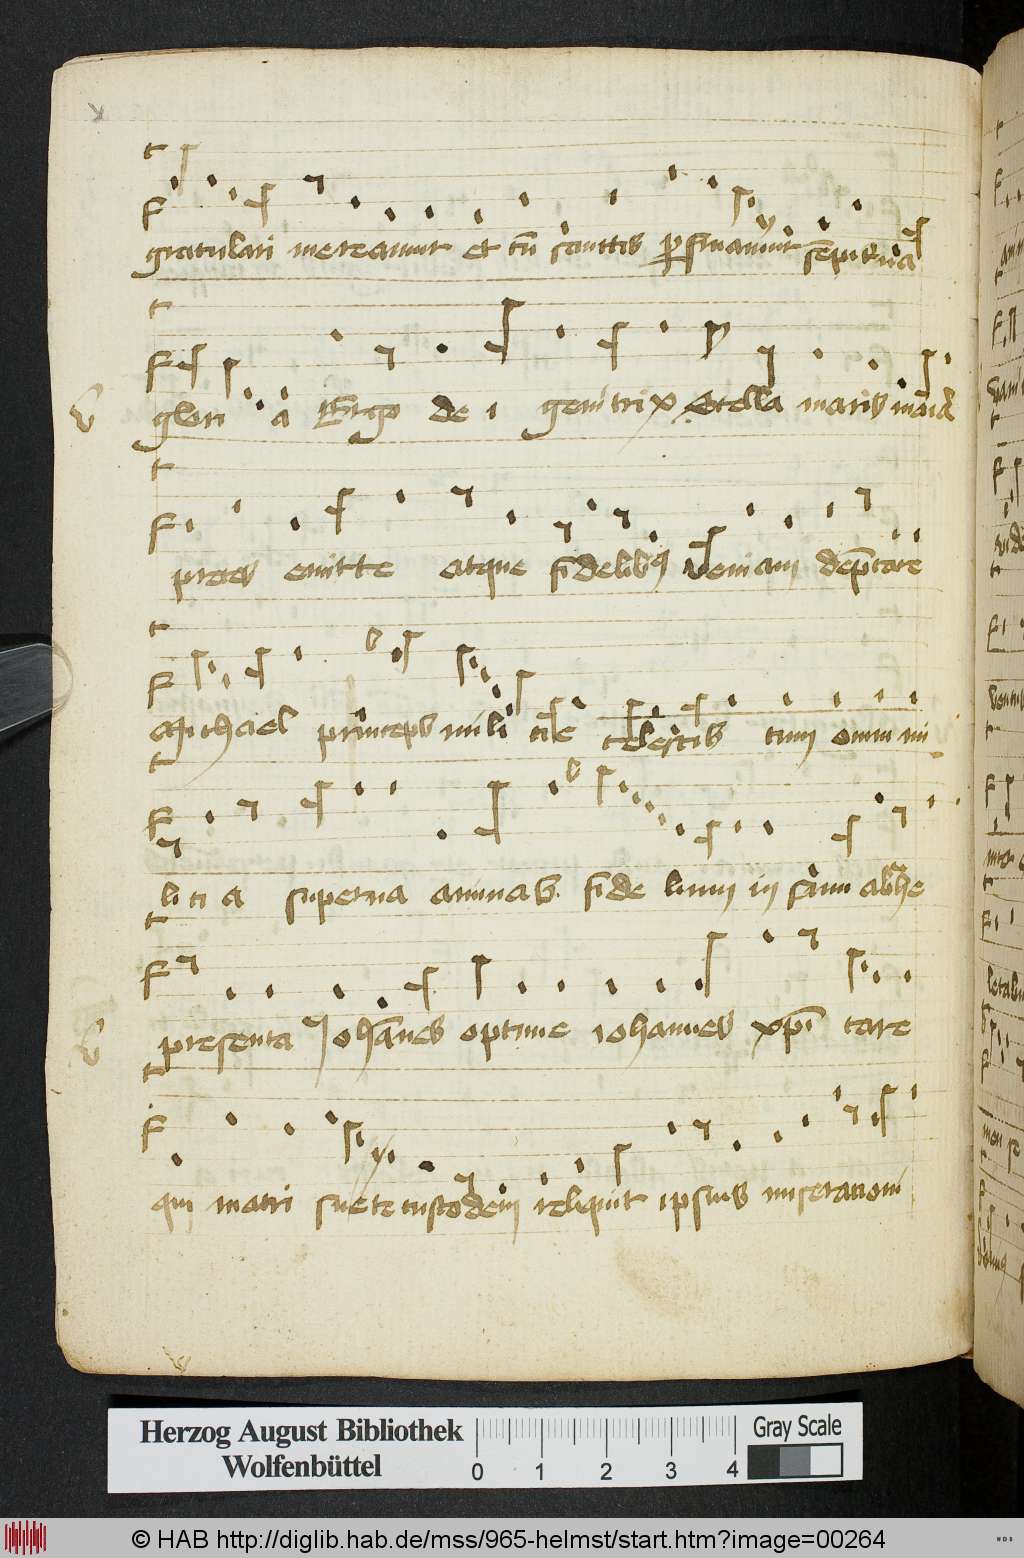 gratulari mereamur et cū sanctis ꝑfruamur sēpit̄na
glori a Ergo de i genitrix Stella maris maria
preces emitte atque fidelibꝰ veniam dep̄care
Michael princeps mili cie celestis cum omni mi
li ci a superna animas fide lium in sinu abrahe
presenta Johānes optime iohannes xpī care
qui matri sue te custodem reliquit ipsius miseracioni
Herzog August Bibliothek
Wolfenbüttel
0 1 2 3 4
Gray Scale
© HAB http://diglib.hab.de/mss/965-helmst/start.htm?image=00264